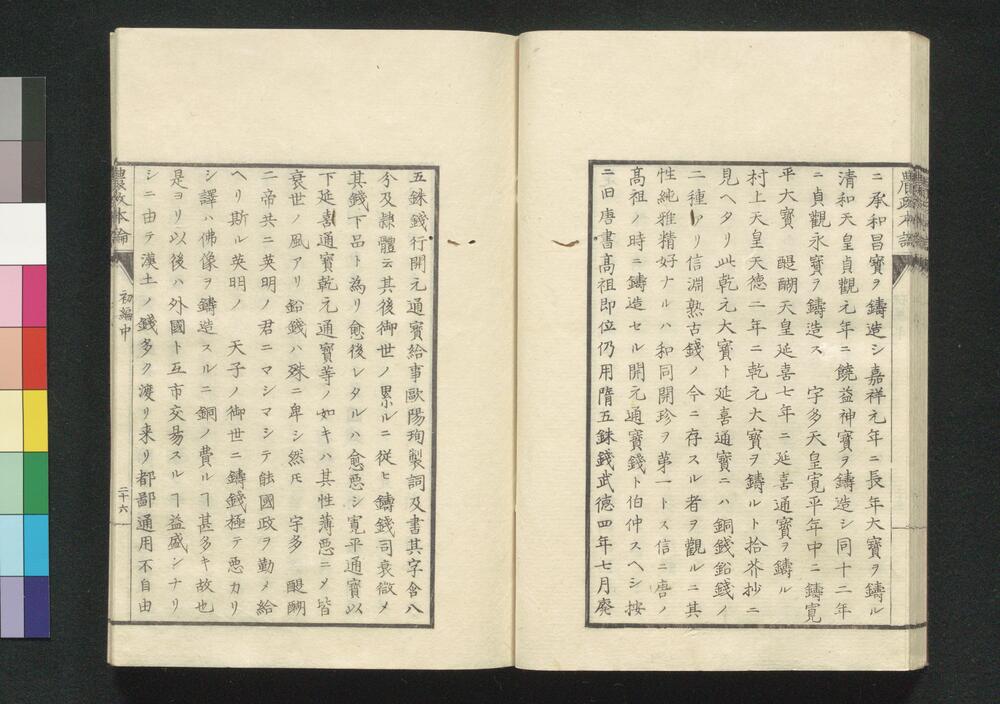 ニ承和昌寳ヲ鑄造シ嘉祥元年ニ長年大寳ヲ鑄ル
清和天皇貞觀元年ニ饒益神寳ヲ鑄造シ同十二年
ニ貞觀永寳ヲ鑄造ス　宇多天皇寛平年中ニ鑄寛
平大寳　醍醐天皇延喜七年ニ延喜通寳ヲ鑄ル
村上天皇天德二年ニ乾元大寳ヲ鑄ルト拾芥抄ニ
見ヘタリ此乾元大寳ト延喜通寳ニハ銅錢鉛錢ノ
二種アリ信淵熟古錢ノ今ニ存スル者ヲ觀ルニ其
性純雅精好ナルハ和同開珍ヲ第一トス信ニ唐ノ
髙祖ノ時ニ鑄造セル開元通寳錢ト伯仲スヘシ按
ニ旧唐書髙祖即位仍用隋五銖錢武徳四年七月廢
五銖錢行開元通寳給事歐陽珣製詞及書其字含八
分及隷體云其後御世ノ累ルニ従ヒ鑄錢司衰微メ
其錢下品ト為リ愈後レタルハ愈悪シ寛平通寳以
下延喜通寳乾元通寳等ノ如キハ其性薄悪ニメ皆
衰世ノ風アリ鉛錢ハ殊ニ卑シ然𪜈　宇多　醍醐
二帝共ニ英明ノ君ニマシマシテ能國政ヲ勤メ給
ヘリ斯ル英明ノ　天子ノ御世ニ鑄錢極テ悪カリ
シ譯ハ佛像ヲ鑄造スルニ銅ノ費ルヿ甚多キ故也
是ヨリ以後ハ外國ト互市交易スルヿ益盛ンナリ
シニ由テ漢土ノ錢多ク渡リ来リ都鄙通用不自由
農政本論
初編中
二十六